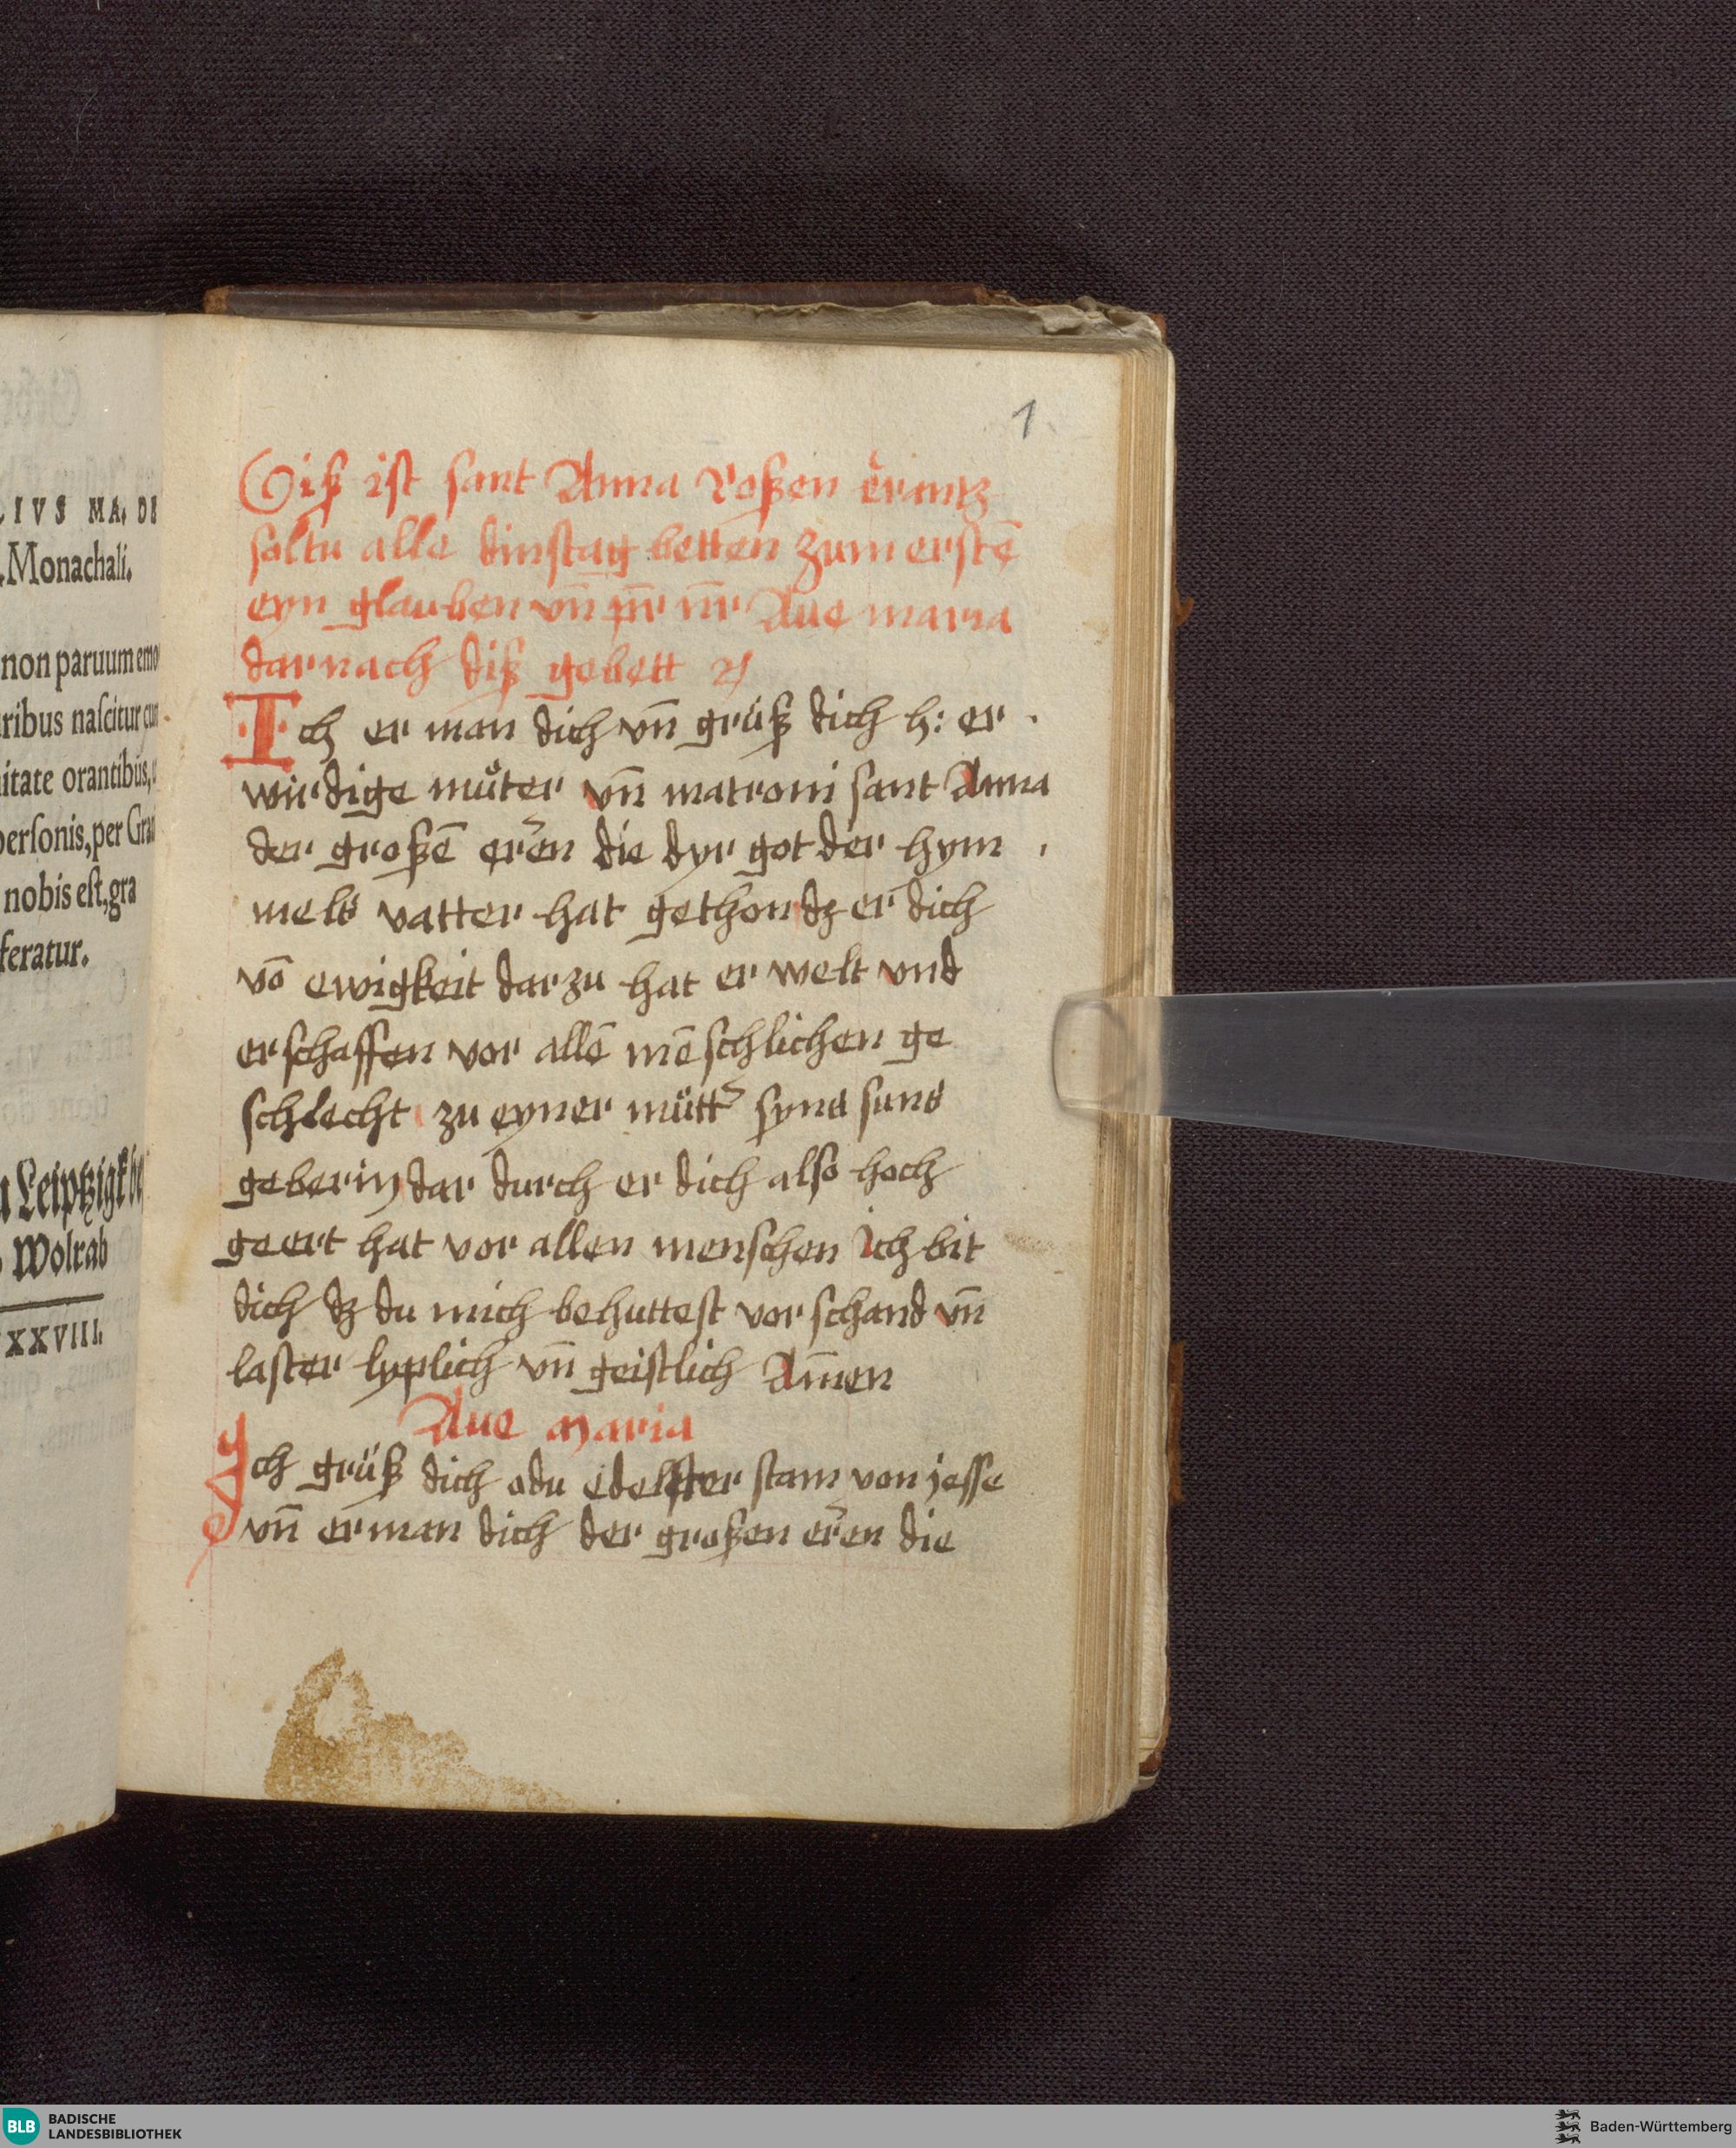 LIVS MA. DE
Monachali.
non paruum emo
ribus naſcitur cur
itate orantibus,
perſonis, per Gra
nobis eſt, gra
feratur.
Leiptzigk
Wolrab
XXVIII.
1
Diß ist sant Anna roßen crantz
soltu alle dinstag betten zum erstē
eyn glauben vn̄ pr̄ nr̄ Aue maria
darnach diß gebett
Ich er man dich vn̄ grüß dich h: er
wirdige mu̓ter vn̄ matroni sant Anna
der großē eren die dyr got der hym
mels vatter hat gethon dz er dich
vō ewigkeit dar zu hat er welt vnd
erschaffen vor allē mēschlichen ge
schlecht zu eyner mütt̓ syns suns
geberin dar durch er dich also hoch
geert hat vor allen menschen ich bit
dich dz du mich behuttest vor schand vn̄
laster lyplich vn̄ geistlich Am̄en
Aue maria
Ich grüß dich odu edelster stam von jesse
vn̄ erman dich der großen eren die
BLB
BADISCHE
LANDESBIBLIOTHEK
Baden-Württemberg